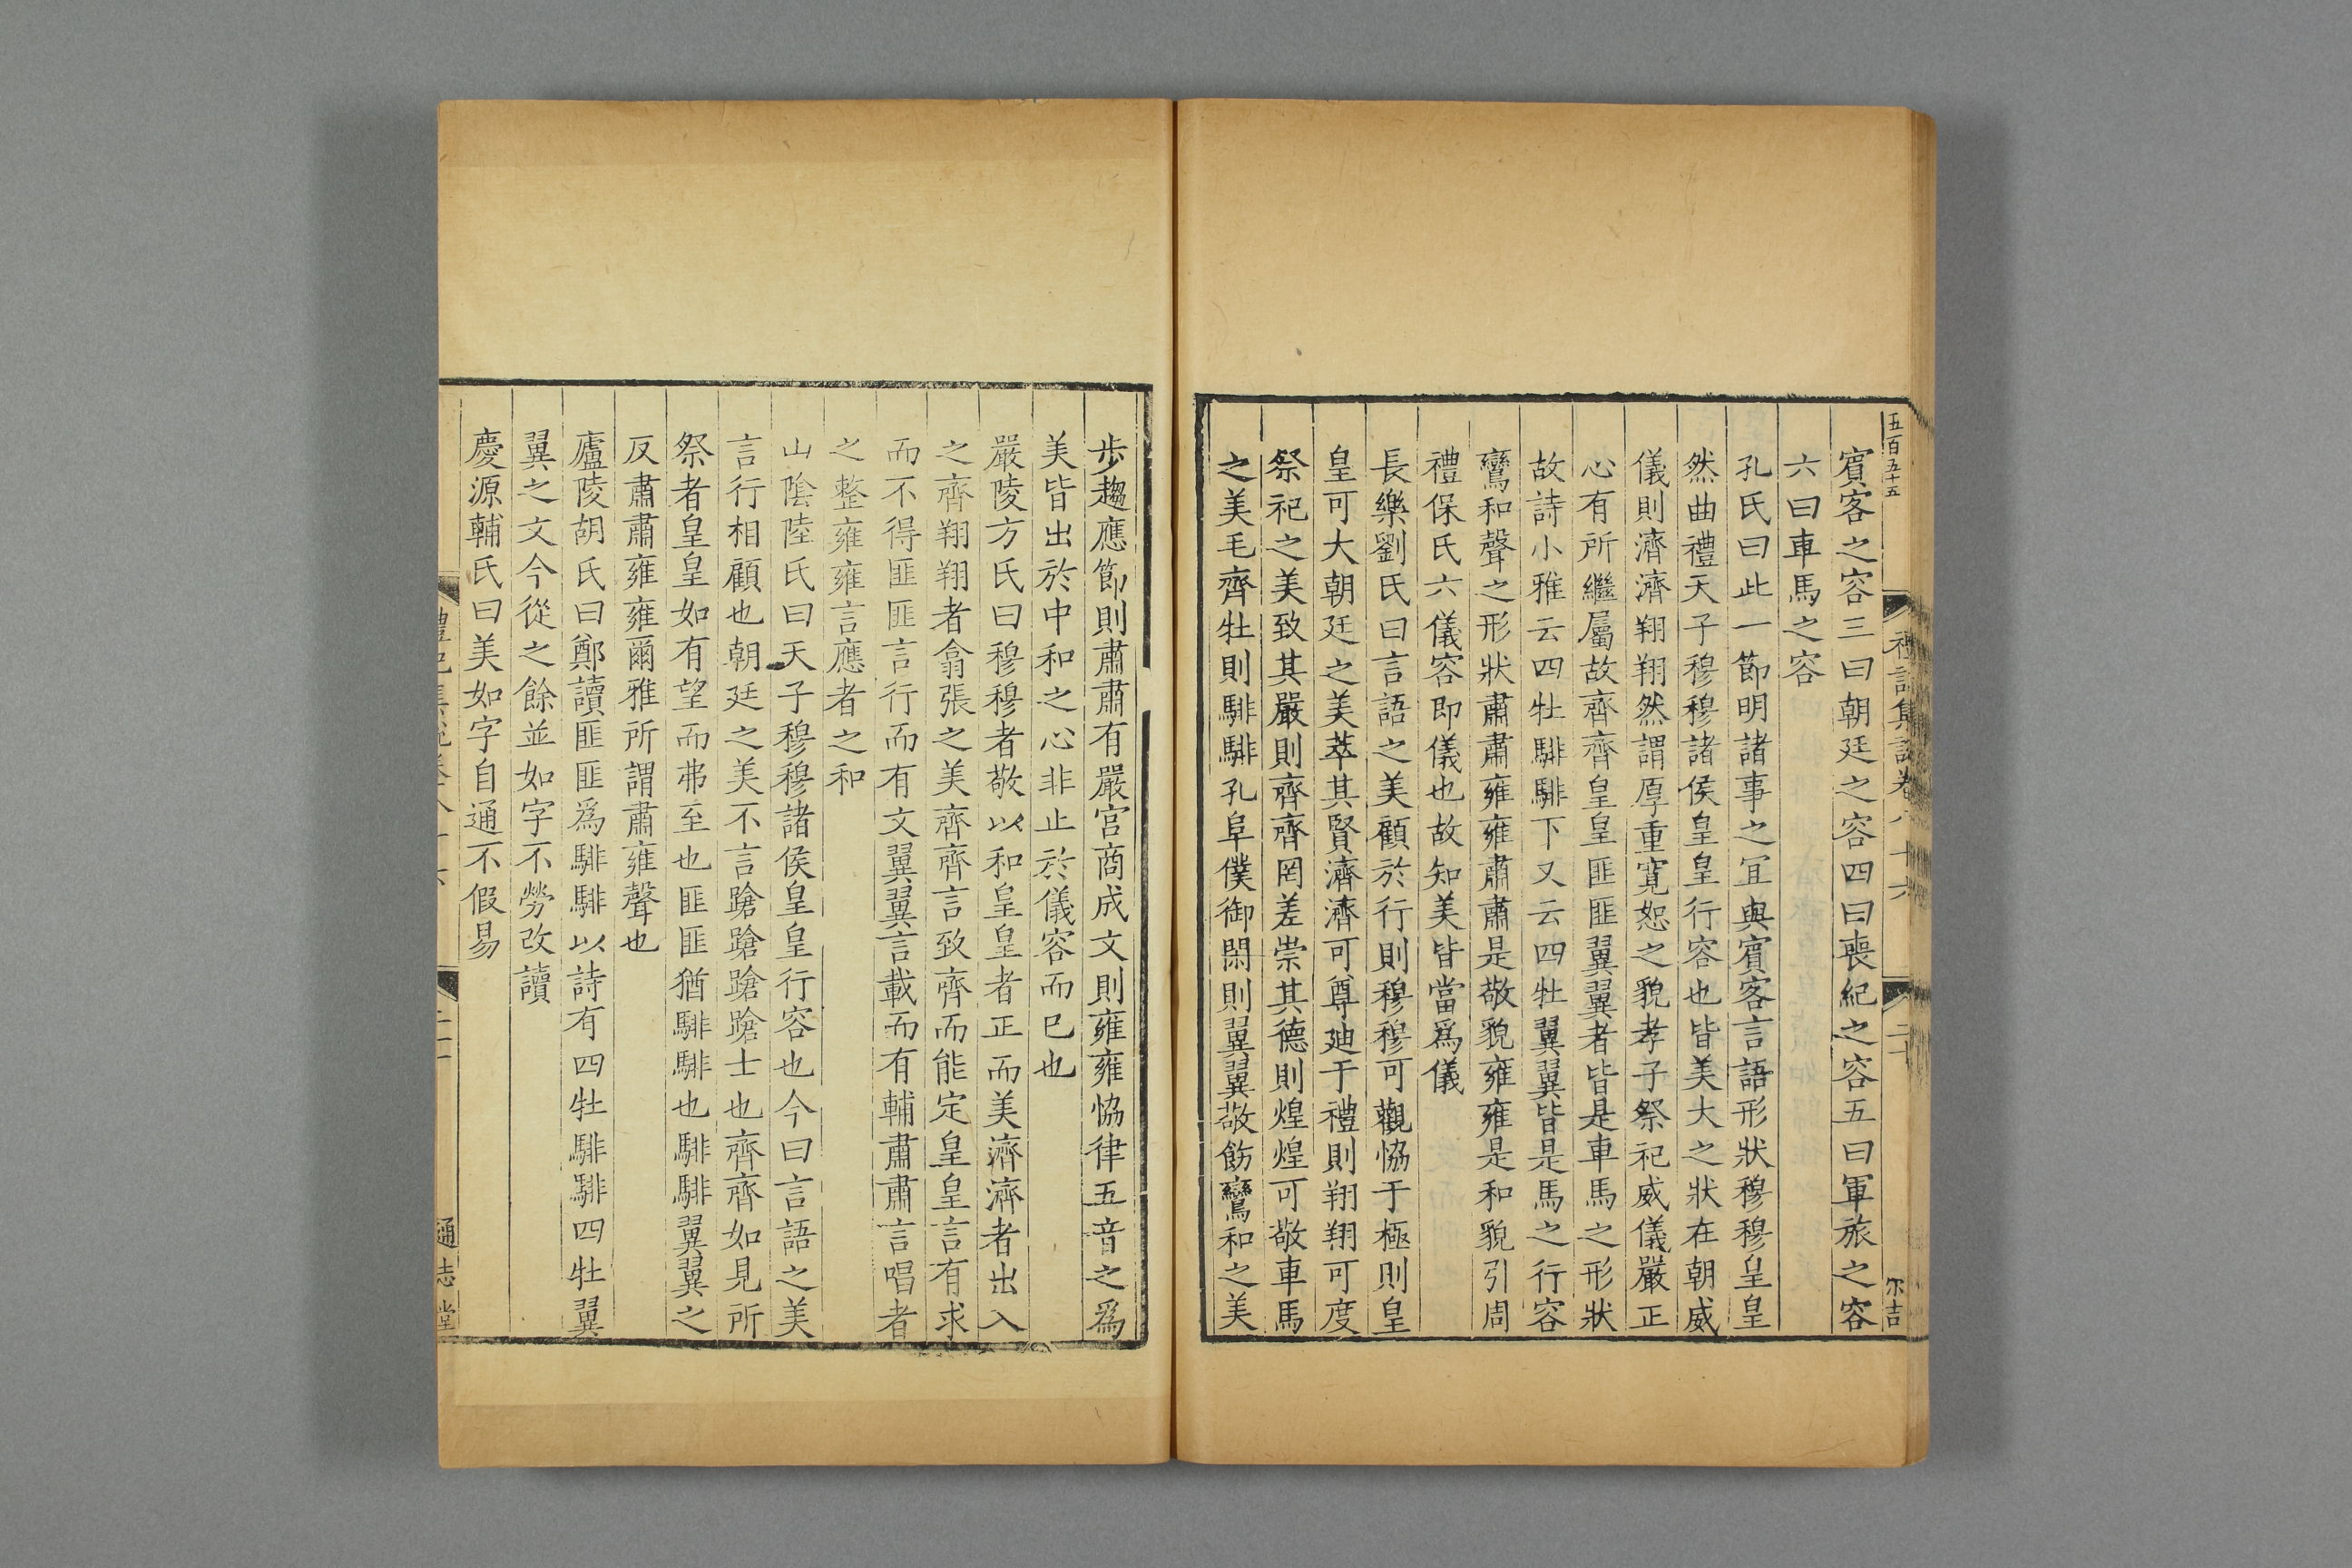 五百五十五
禮記集說卷八十六
二十
尔吉
賓客之容三曰朝廷之容四曰喪紀之容五曰軍旅之容
六曰車馬之容
孔氏曰此一節明諸事之冝與賓客言語形狀穆穆皇皇
然曲禮天子穆穆諸侯皇皇行容也皆美大之狀在朝威
儀則濟濟翔翔然謂厚重寬恕之貌孝子祭祀威儀嚴正
心有所繼屬故齊齊皇皇匪匪翼翼者皆是車馬之形狀
故詩小雅云四牡騑騑下又云四牡翼翼皆是馬之行容
鸞和聲之形狀肅肅雍雍肅肅是敬貌雍雍是和貌引周
禮保氏六儀容即儀也故知美皆當爲儀
長樂劉氏曰言語之美顧於行則穆穆可觀恊于極則皇
皇可大朝廷之美萃其賢濟濟可尊廸于禮則翔翔可度
祭祀之美致其嚴則齊齊罔差崇其德則煌煌可敬車馬
之美毛齊牡則騑騑孔阜僕御閑則翼翼敬飭鸞和之美
步趨應節則肅肅有嚴宫商成文則雍雍恊律五音之爲
美皆出於中和之心非止於儀容而已也
嚴陵方氏曰穆穆者敬以和皇皇者正而美濟濟者出入
之齊翔翔者翕張之美齊齊言致齊而能定皇皇言有求
而不得匪匪言行而有文翼翼言載而有輔肅肅言唱者
之整雍雍言應者之和
山隂陸氏曰天子穆穆諸侯皇皇行容也今曰言語之美
言行相顧也朝廷之美不言蹌蹌蹌蹌士也齊齊如見所
祭者皇皇如有望而弗至也匪匪猶騑騑也騑騑翼翼之
反肅肅雍雍爾雅所謂肅雍聲也
廬陵胡氏曰鄭讀匪匪爲騑騑以詩有四牡騑騑四牡翼
翼之文今從之餘並如字不勞改讀
慶源輔氏曰美如字自通不假易
禮記集說卷八十六
二十一
通志堂